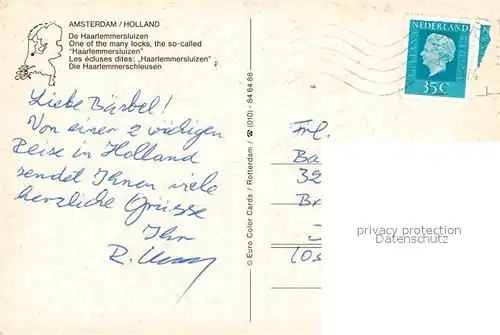 AMSTERDAM / HOLLAND
De Haarlemmersluizen
One of the many locks, the so-called
"Haarlemmersluizen"
Les écluses dites: „Haarlemmersluizen"
Die Haarlemmerschleusen
NEDERLAND
JULIANA REGINA
35 C
Liebe Bärbel!
Von einer 2 wöchigen
Reise in Holland
sendet Ihnen viele
herzliche Grüsse
Ihr
R.
© Euro Color Cards / Rotterdam / ☎ (010) - 84 64 88
Frl.
Ba
32
Br
privacy protection
Datenschutz